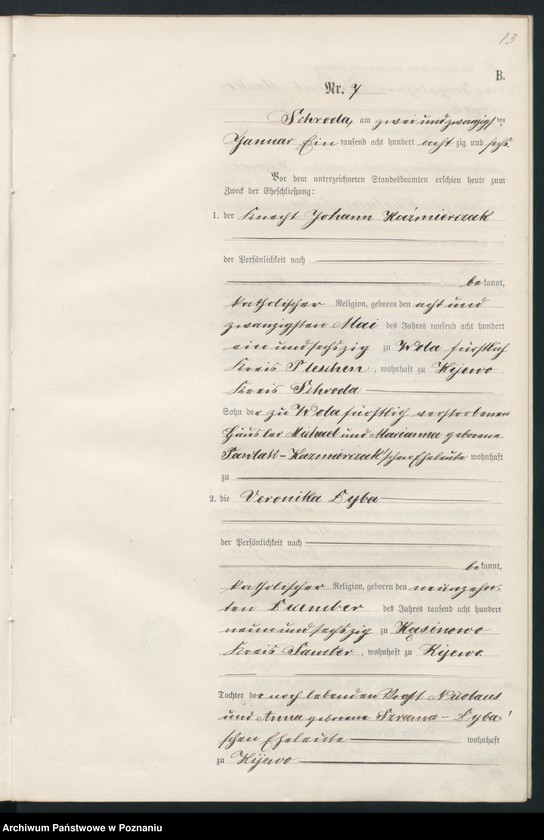 13
B.
Nr. 7
Schroda, am zwei und zwanzigsten
Januar Ein tausend acht hundert acht zig und sechs.
Vor dem unterzeichneten Standesbeamten erschien heute zum
Zweck der Eheschließung:
1. der Knecht Johann Kaźmierczak
der Persönlichkeit nach
be kannt,
katholischer Religion, geboren den acht und
zwanzigsten Mai des Jahres tausend acht hundert
ein und sechszig zu Wola fürstlich
Kreis Pleschen, wohnhaft zu Kijewo
Kreis Schroda
Sohn der zu Wola fürstlich verstorbenen
Häusler Michael und Marianna geborene
Kazmierczak'schen Eheleute wohnhaft
zu
2. die Veronika Dyba
der Persönlichkeit nach
be kannt,
katholischer Religion, geboren den neunzehn-
ten Dezember des Jahres tausend acht hundert
neun und sechszig zu Kąsinowo
Kreis Samter, wohnhaft zu Kijewo
Tochter der noch lebenden Vogt Nicolaus
und Anna geborene Szrama - Dyba'
schen Eheleute wohnhaft
zu Kijewo
Archiwum Państwowe w Poznaniu